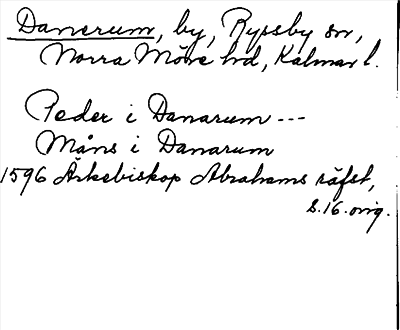 Danerum, by, Ryssby sn,
Norra Möre hd, Kalmar l.
Peder i Danarum ---
Måns i Danarum
1596 Ärkebiskop Abrahams räfst,
s. 16. orig.